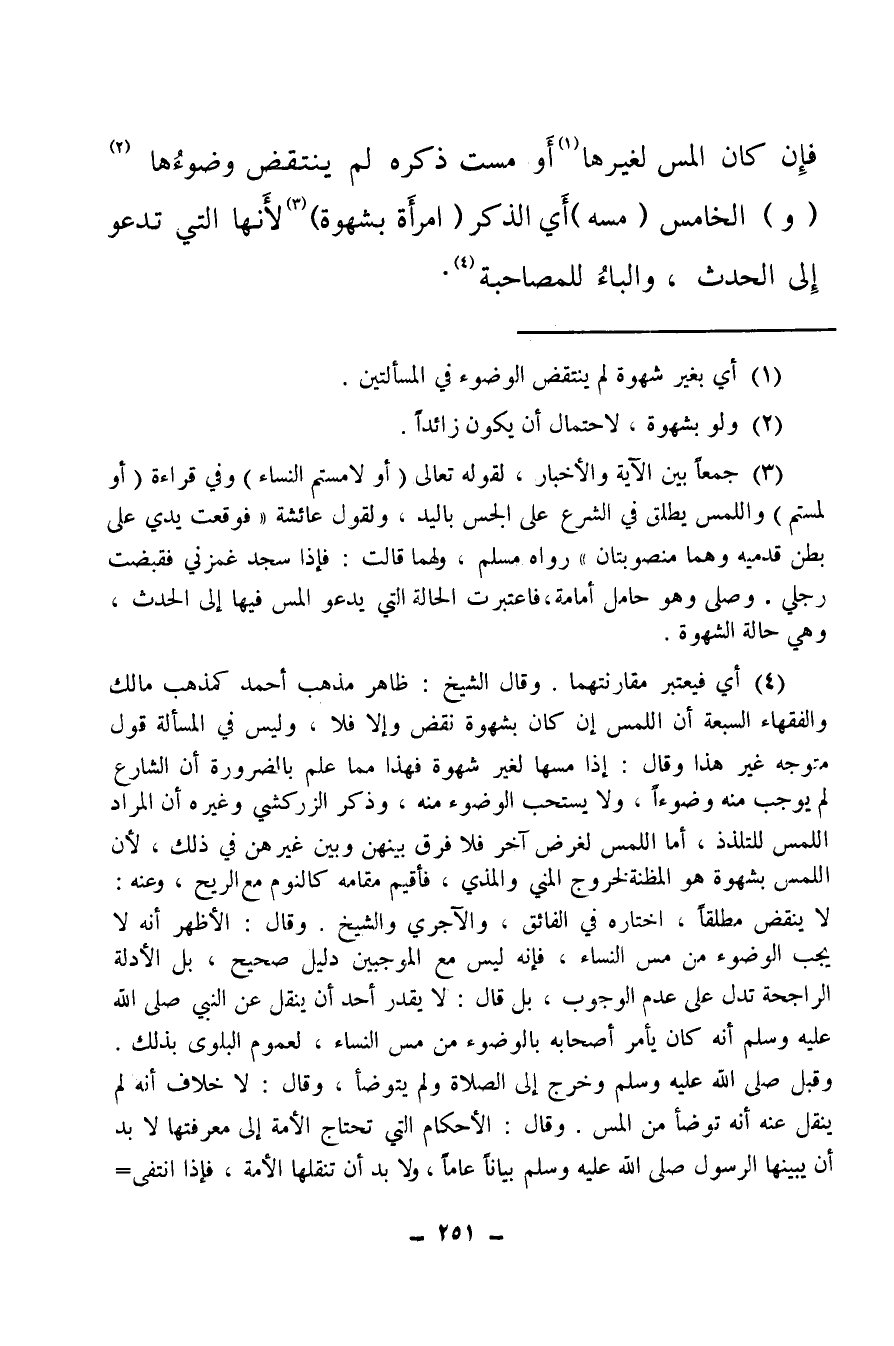 فإِن كان المس لغيرها(١) أَو مست ذكره لم ينتقض وضوءُها (٢)
( و ) الخامس ( مسه )أَي الذكر ( امرأَة بشهوة)(٣) لأَنها التي تدعو
إِلى الحدث ، والباءُ للمصاحبة (٤) .
(١) أي بغير شهوة لم ينتقض الوضوء في المسألتين .
(٢) ولو بشهوة ، لاحتمال أن يكون زائداً .
(٣) جمعاً بين الآية والأخبار ، لقوله تعالى ( أو لامستم النساء ) وفي قراءة ( أو
لمستم ) واللمس يطلق في الشرع على الجس باليد ، ولقول عائشة « فوقعت يدي على
بطن قدميه وهما منصوبتان » رواه مسلم ، ولهما قالت : فإذا سجد غمزني فقبضت
رجلي . وصلى وهو حامل أمامة،فاعتبرت الحالة التي يدعو المس فيها إلى الحدث ،
وهي حالة الشهوة .
(٤) أي فيعتبر مقارنتهما . وقال الشيخ : ظاهر مذهب أحمد كمذهب مالك
والفقهاء السبعة أن اللمس إن كان بشهوة نقض وإلا فلا ، وليس في المسألة قول
متوجه غير هذا وقال : إذا مسها لغير شهوة فهذا مما علم بالضرورة أن الشارع
لم يوجب منه وضوءاً ، ولا يستحب الوضوء منه ، وذكر الزركشي وغيره أن المراد
اللمس للتلذذ ، أما اللمس لغرض آخر فلا فرق بينهن وبين غيرهن في ذلك ، لأن
اللمس بشهوة هو المظنة لخروج المني والمذي ، فأقيم مقامه كالنوم مع الريح ، وعنه :
لا ينقض مطلقاً ، اختاره في الفائق ، والآجري والشيخ . وقال : الأظهر أنه لا
يجب الوضوء من مس النساء ، فإنه ليس مع الموجبين دليل صحيح ، بل الأدلة
الراجحة تدل على عدم الوجوب ، بل قال : لا يقدر أحد أن ينقل عن النبي صلى الله
عليه وسلم أنه كان يأمر أصحابه بالوضوء من مس النساء ، لعموم البلوى بذلك .
وقبل صلى الله عليه وسلم وخرج إلى الصلاة ولم يتوضأ ، وقال : لا خلاف أنه لم
ينقل عنه أنه توضأ من المس . وقال : الأحكام التي تحتاج الأمة إلى معرفتها لا بد
أن يبينها الرسول صلى الله عليه وسلم بياناً عاماً ، ولا بد أن تنقلها الأمة ، فإذا انتفى=
– ٢٥١ –